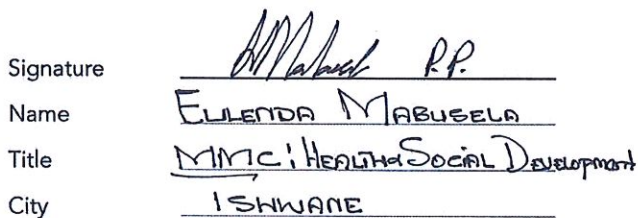 Signature P.P.
Name EULENDA MABUSELA
Title MMC: HEALTH & SOCIAL DEVELOPMENT
City TSHWANE